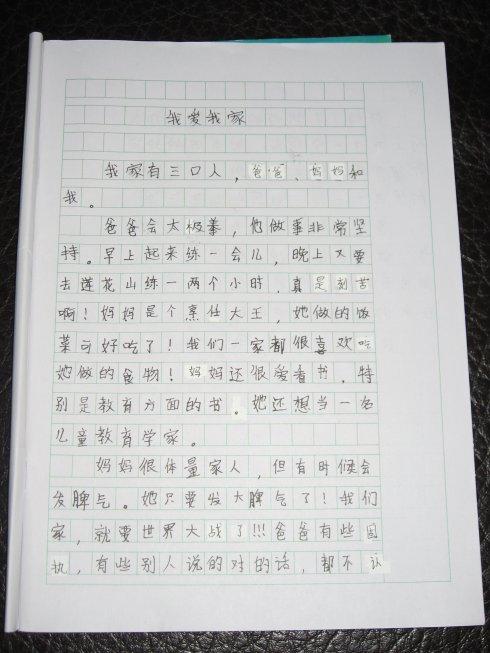 我爱我家
我家有三口人，爸爸、妈妈和
我。
爸爸会太极拳，他做事非常坚
持。早上起来练一会儿，晚上又要
去莲花山练一两个小时，真是刻苦
啊！妈妈是个烹饪大王，她做的饭
菜可好吃了！我们一家都很喜欢吃
她做的食物！妈妈还很爱看书，特
别是教育方面的书。她还想当一名
儿童教育学家。
妈妈很体量家人，但有时候会
发脾气。她只要发大脾气了！我们
家，就要世界大战了!!!爸爸有些固
执，有些别人说的对的话，都不认